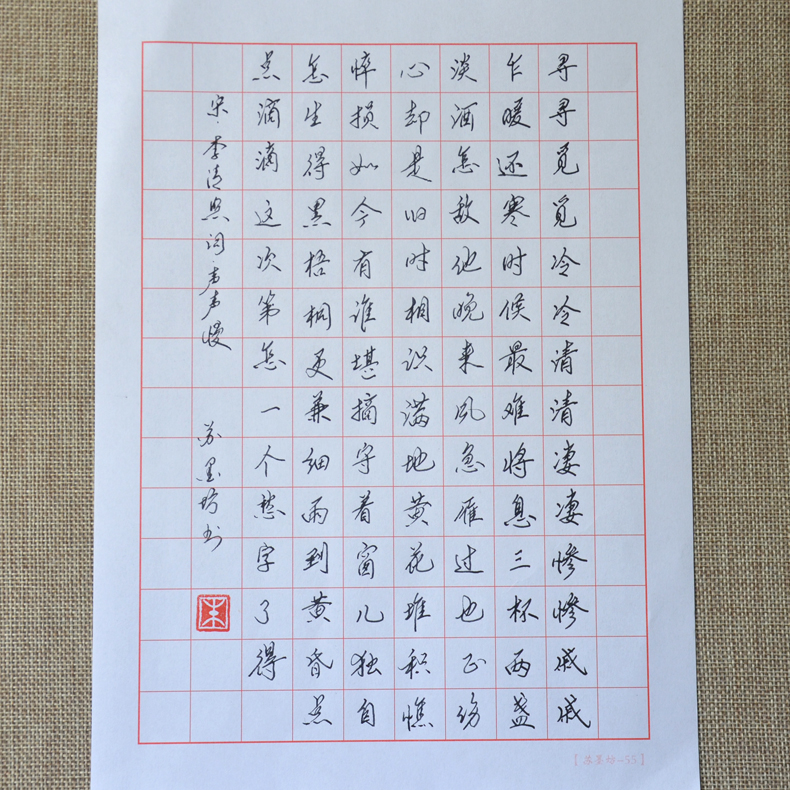 寻寻觅觅冷冷清清凄凄惨惨戚戚
乍暖还寒时候最难将息三杯两盏
淡酒怎敌他晚来风急雁过也正伤
心却是旧时相识满地黄花堆积憔
悴损如今有谁堪摘守着窗儿独自
怎生得黑梧桐更兼细雨到黄昏点
点滴滴这次第怎一个愁字了得
宋·李清照词·声声慢 苏墨坊书
[苏墨坊-55]